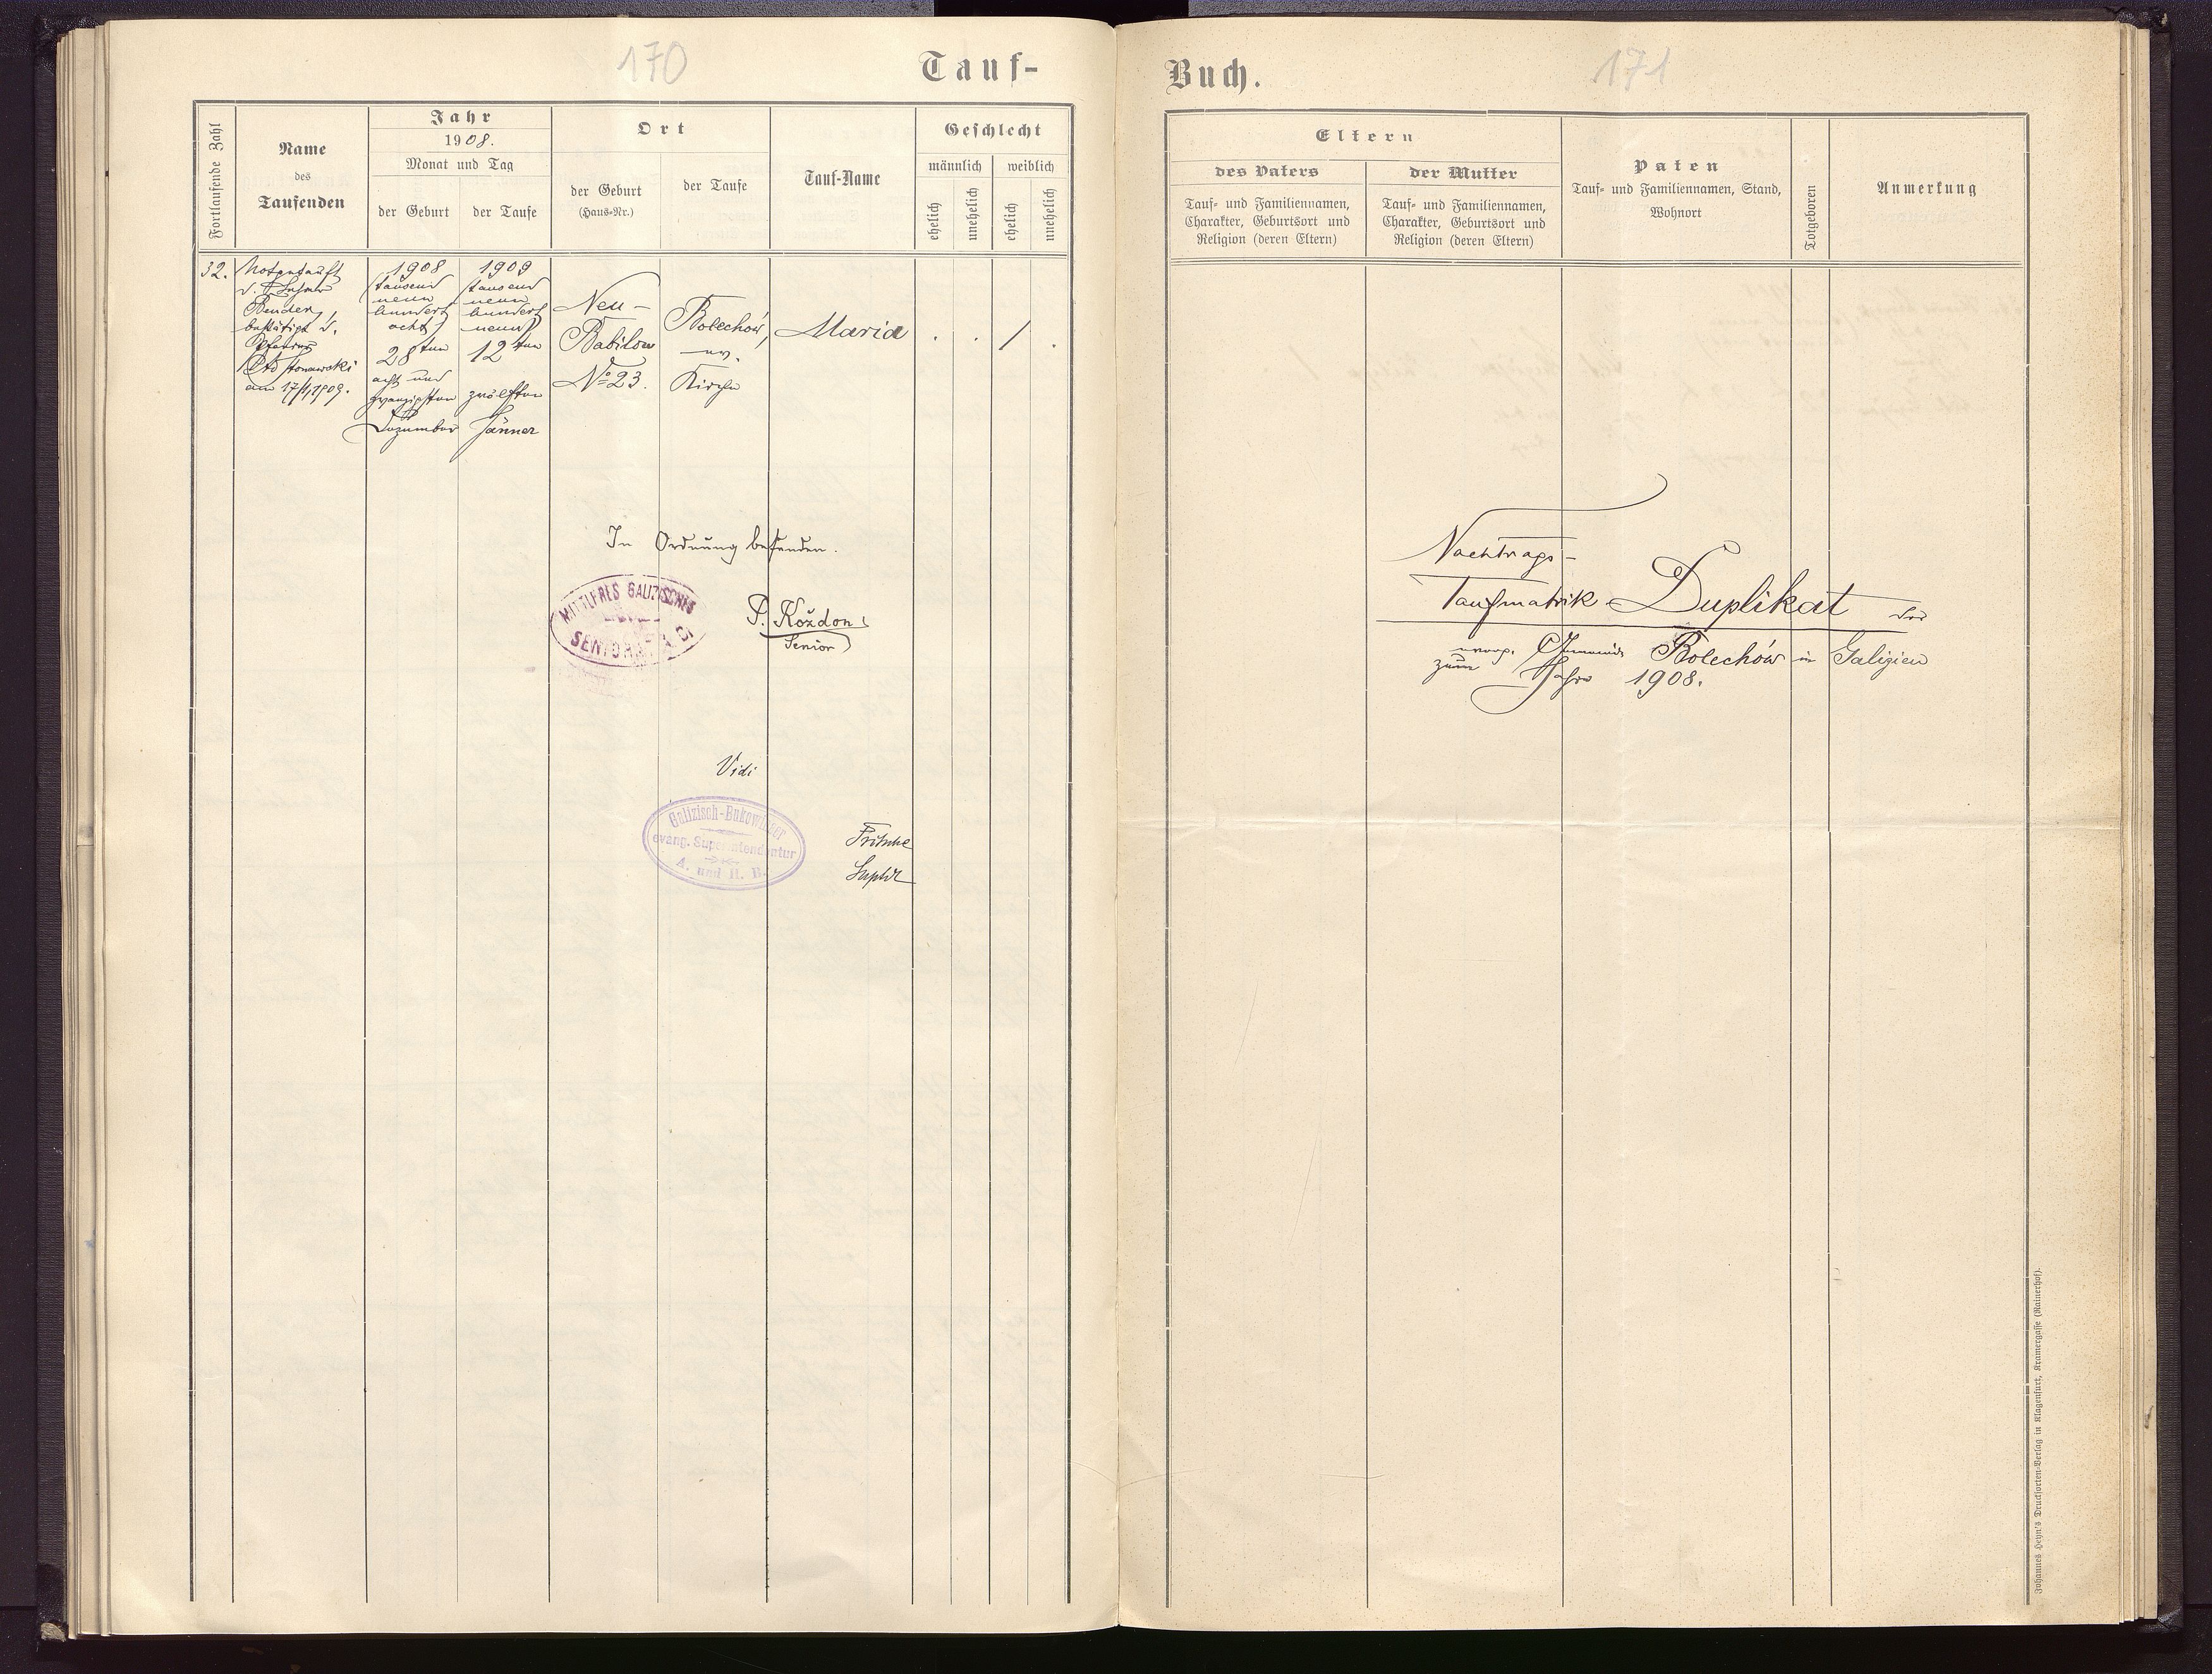 170
Tauf-
Fortlaufende Zahl
Name
des
Taufenden
Jahr
1908.
Monat und Tag
der Geburt
der Taufe
Ort
der Geburt
(Haus-Nr.)
der Taufe
Tauf-Name
Geschlecht
männlich
weiblich
ehelich
unehelich
ehelich
unehelich
32.
Notgetauft
v. Lehrer
Bender,
bestätigt v.
Pfarrer
am 17/1 1909.
1908
(tausend
neun
hundert
acht)
28ten
acht und
zwanzigsten
Dezember
1909
(tausend
neun
hundert
neun)
12ten
zwölften
Jänner
Neu-
Babilon
No 23.
Bolechów,
ev.
Kirche
Maria
. . / .
In Ordnung befunden.
MITTLERES GALIZISCHES
SENIORAT
P. Kożdoń
Senior
Vidi
Galizisch-Bukowiner
evang. Superintendentur
A. und H. B.
Fritsche
Suptdt
171
Buch.
Eltern
des Vaters
Tauf- und Familiennamen,
Charakter, Geburtsort und
Religion (deren Eltern)
der Mutter
Tauf- und Familiennamen,
Charakter, Geburtsort und
Religion (deren Eltern)
Paten
Tauf- und Familiennamen, Stand,
Wohnort
Totgeboren
Anmerkung
Nachtrags-
Taufmatrik-Duplikat der
evang. Gemeinde Bolechów in Galizien
zum Jahre 1908.
Johannes Heyn's Drucksorten-Verlag in Klagenfurt, Kramergasse (Rainerhof).